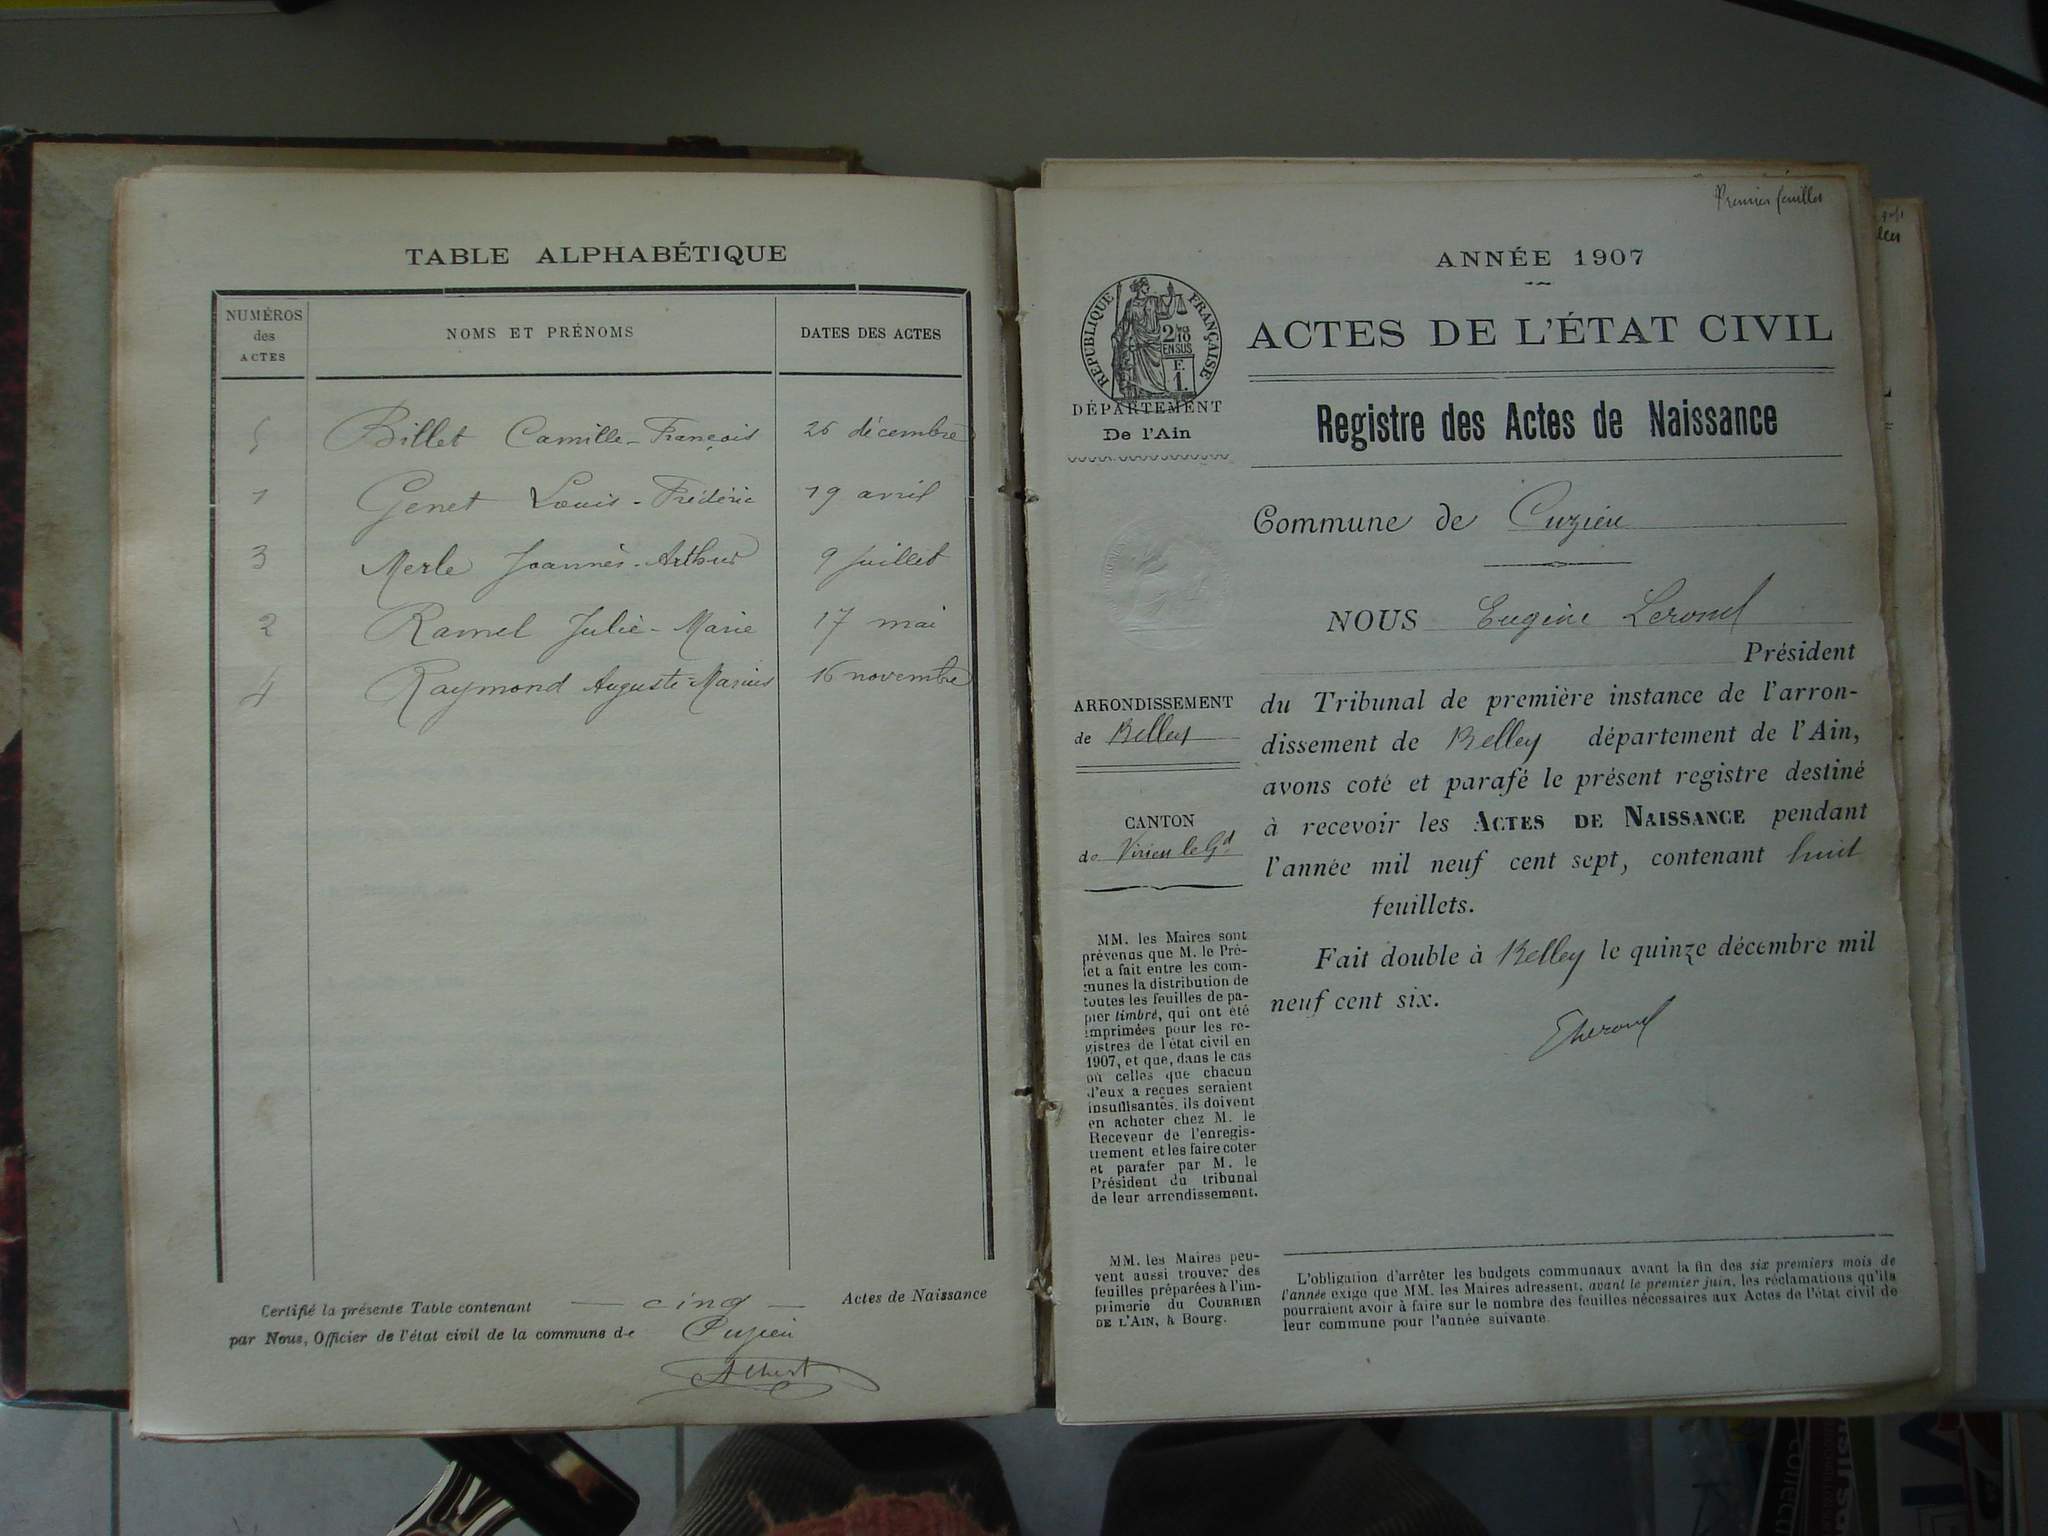 TABLE ALPHABÉTIQUE
NUMÉROS des ACTES
NOMS ET PRÉNOMS
DATES DES ACTES
5 Billet Camille-François 26 décembre
1 Genet Louis-Frédéric 19 avril
3 Merle Joannès-Arthur 9 juillet
2 Ramel Julie-Marie 17 mai
4 Raymond Auguste-Marius 16 novembre
Certifié la présente Table contenant — cinq — Actes de Naissance
par Nous, Officier de l'état civil de la commune de Cuzieu
Premier feuillet
ANNÉE 1907
ACTES DE L'ÉTAT CIVIL
RÉPUBLIQUE FRANÇAISE
2/10 EN SUS
F.
1.
DÉPARTEMENT
De l'Ain
Registre des Actes de Naissance
Commune de Cuzieu
NOUS Eugène
Président
du Tribunal de première instance de l'arron-
dissement de Belley département de l'Ain,
avons coté et parafé le présent registre destiné
à recevoir les ACTES DE NAISSANCE pendant
l'année mil neuf cent sept, contenant huit
feuillets.
Fait double à Belley le quinze décembre mil
neuf cent six.
ARRONDISSEMENT
de Belley
CANTON
de Virieu le Gd
MM. les Maires sont
prévenus que M. le Pré-
fet a fait entre les com-
munes la distribution de
toutes les feuilles de pa-
pier timbré, qui ont été
imprimées pour les re-
gistres de l'état civil en
1907, et que, dans le cas
où celles que chacun
d'eux a reçues seraient
insuffisantes, ils doivent
en acheter chez M. le
Receveur de l'enregis-
trement et les faire coter
et parafer par M. le
Président du tribunal
de leur arrondissement.
MM. les Maires peu-
vent aussi trouver des
feuilles préparées à l'im-
primerie du COURRIER
DE L'AIN, à Bourg.
L'obligation d'arrêter les budgets communaux avant la fin des six premiers mois de
l'année exige que MM. les Maires adressent, avant le premier juin, les réclamations qu'ils
pourraient avoir à faire sur le nombre des feuilles nécessaires aux Actes de l'état civil de
leur commune pour l'année suivante.